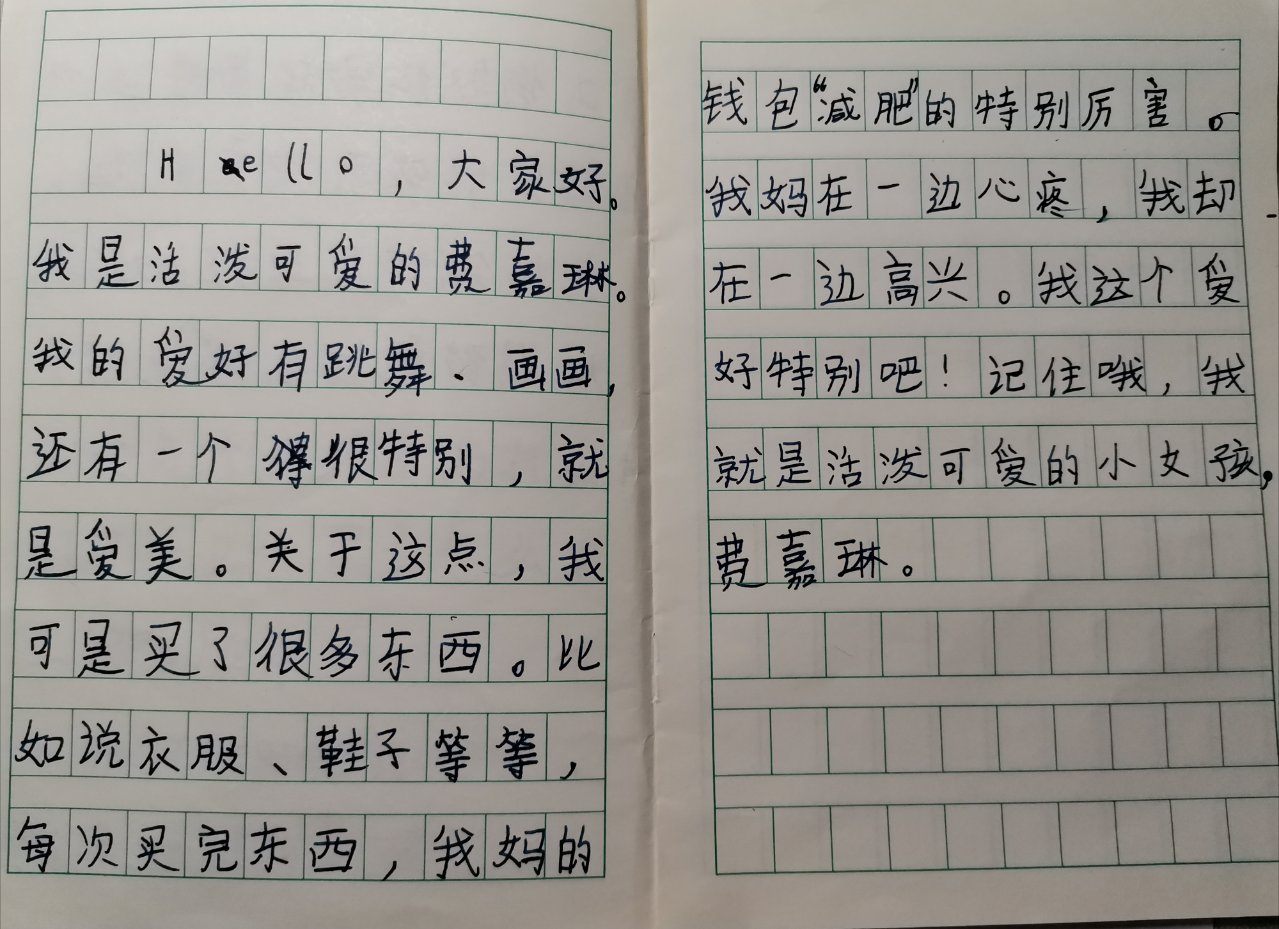 Hello，大家好。
我是活泼可爱的费嘉琳。
我的爱好有跳舞、画画，
还有一个很特别，就
是爱美。关于这点，我
可是买了很多东西。比
如说衣服、鞋子等等，
每次买完东西，我妈的
钱包“减肥”的特别厉害。
我妈在一边心疼，我却
在一边高兴。我这个爱
好特别吧！记住哦，我
就是活泼可爱的小女孩，
费嘉琳。